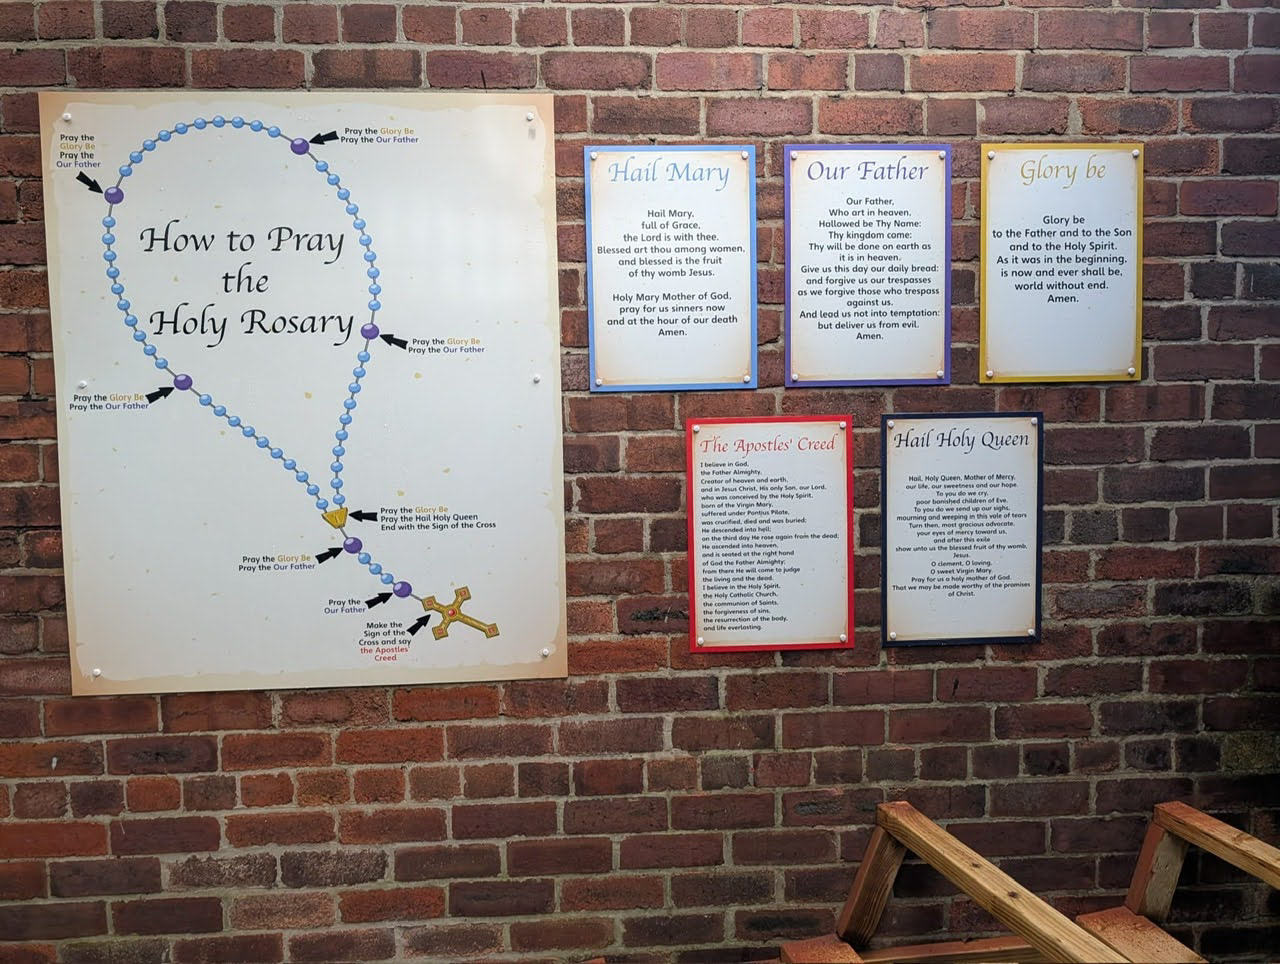 Pray the
Glory Be
Pray the
Our Father
Pray the Glory Be
Pray the Our Father
How to Pray
the
Holy Rosary
Pray the Glory Be
Pray the Our Father
Pray the Glory Be
Pray the Our Father
Pray the Glory Be
Pray the Hail Holy Queen
End with the Sign of the Cross
Pray the Glory Be
Pray the Our Father
Pray the
Our Father
Make the
Sign of the
Cross and say
the Apostles
Creed
Hail Mary
Hail Mary,
full of Grace,
the Lord is with thee.
Blessed art thou among women,
and blessed is the fruit
of thy womb Jesus.
Holy Mary Mother of God,
pray for us sinners now
and at the hour of our death
Amen.
Our Father
Our Father,
Who art in heaven,
Hallowed be Thy Name:
Thy kingdom come:
Thy will be done on earth as
it is in heaven.
Give us this day our daily bread:
and forgive us our trespasses
as we forgive those who trespass
against us.
And lead us not into temptation:
but deliver us from evil.
Amen.
Glory be
Glory be
to the Father and to the Son
and to the Holy Spirit.
As it was in the beginning,
is now and ever shall be,
world without end.
Amen.
The Apostles' Creed
I believe in God,
the Father Almighty,
Creator of heaven and earth,
and in Jesus Christ, His only Son, our Lord,
who was conceived by the Holy Spirit,
born of the Virgin Mary,
suffered under Pontius Pilate,
was crucified, died and was buried;
He descended into hell;
on the third day He rose again from the dead;
He ascended into heaven,
and is seated at the right hand
of God the Father Almighty;
from there He will come to judge
the living and the dead.
I believe in the Holy Spirit,
the Holy Catholic Church,
the communion of Saints,
the forgiveness of sins,
the resurrection of the body,
and life everlasting.
Hail Holy Queen
Hail, Holy Queen, Mother of Mercy,
our life, our sweetness and our hope.
To you do we cry,
poor banished children of Eve.
To you do we send up our sighs,
mourning and weeping in this vale of tears
Turn then, most gracious advocate,
your eyes of mercy toward us,
and after this exile
show unto us the blessed fruit of thy womb,
Jesus.
O clement, O loving,
O sweet Virgin Mary.
Pray for us o holy mother of God,
That we may be made worthy of the promises
of Christ.